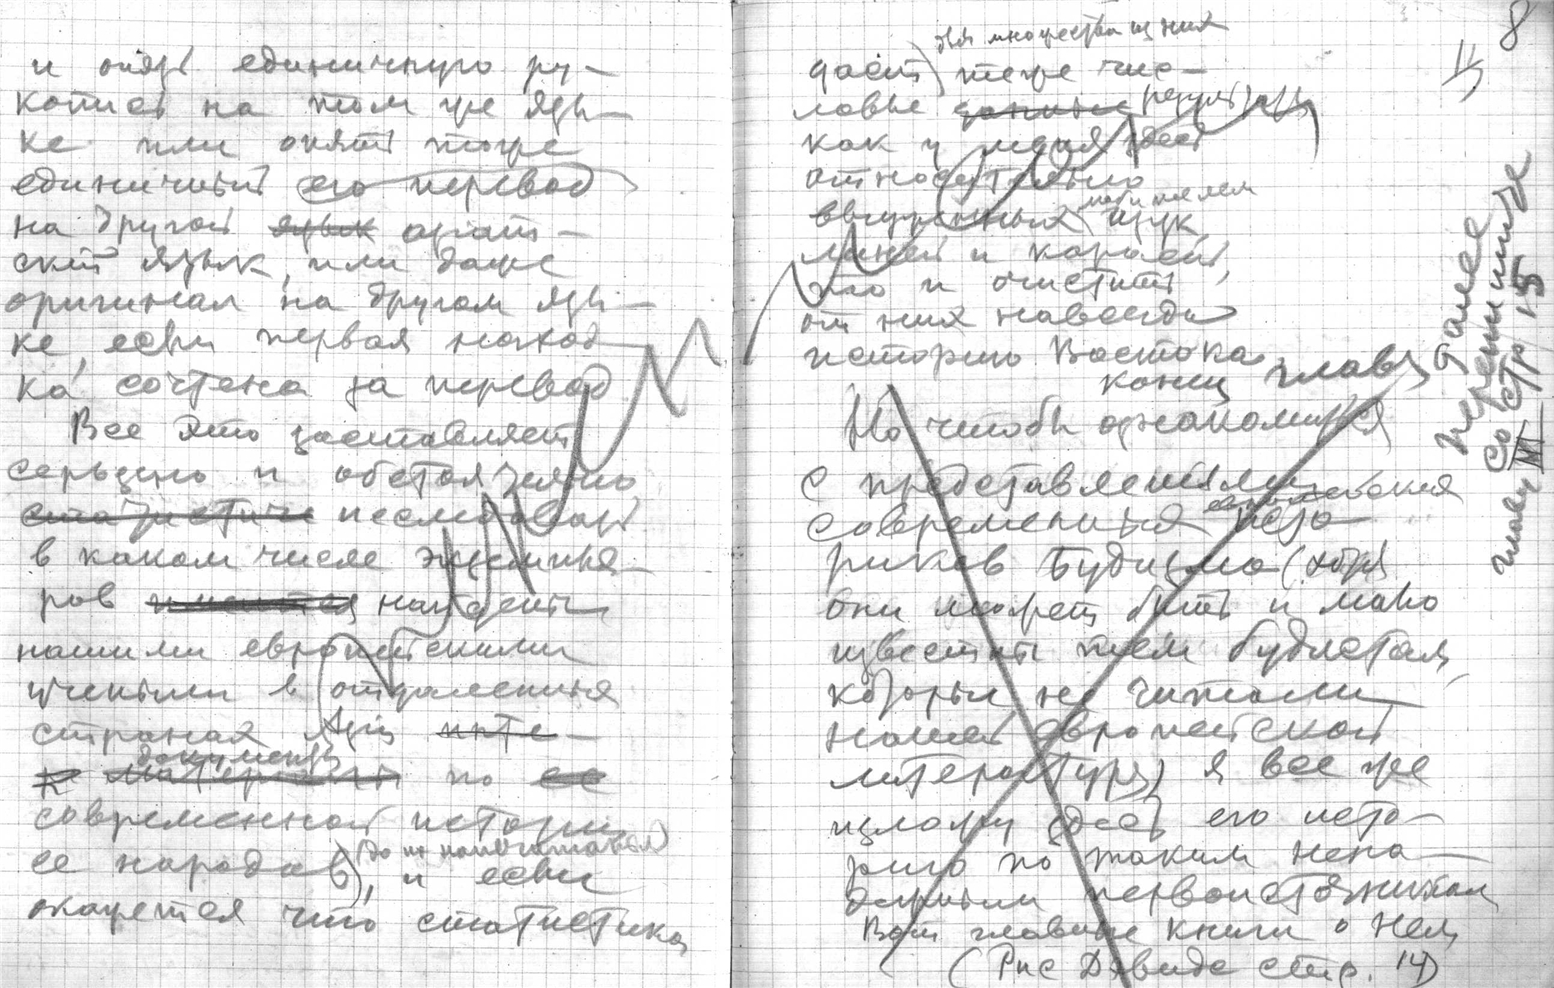 и опять единичную ру-
копись на том же язы-
ке или опять тоже
единичный его перевод
на другой язык азиат-
ский язык, или даже
оригинал на другом язы-
ке, если первая наход-
ка сочтена за перевод.
Все это заставляет
серьезно и обстоятельно
статистиче исследовать
в каком числе экземпля-
ров имеются найдены
нашими европейскими
учеными в отдаленных
странах Азии
документы
материалы по ее
современной истории
ее народов (до их напечатания)
, и если
окажется что статистика
8
для множества из них
дает тоже чис-
ловые данные результаты
как у меня здесь
относительно
ввиду
и королей,
то и очистить
от них навсегда
историю Востока.
конец главы
Но чтобы ознакомиться
с представлениями
современных европейских исто-
риков Будизма (хотя
они может быть и мало
известны тем будистам,
которые не читали
нашей европейской
литературы) я все же
изложу здесь его исто-
рию по таким нена-
дежным первоисточникам
Вот главные книги о нем
(Рис Дэвидс стр. 14)
Далее
перепишите
со стр 15
главу III